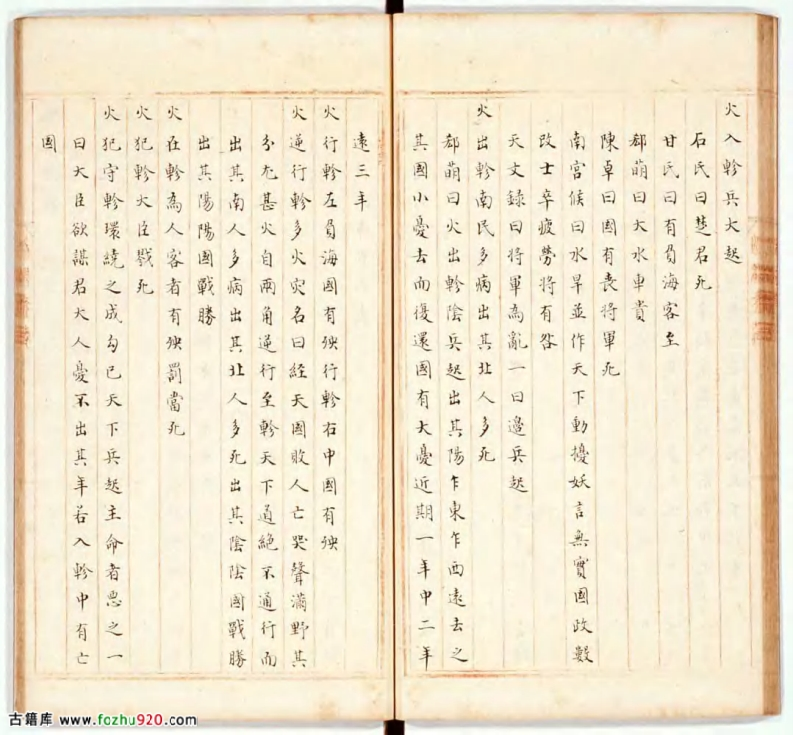 火入軫兵大起
石氏曰楚君死
甘氏曰有負海客至
郄萌曰大水車貴
陳卓曰國有喪將軍死
南宫候曰水旱並作天下動擾妖言無實國政數
改士卒疲勞將有咎
天文録曰將軍為亂一曰邉兵起
火出軫南民多病出其北人多死
郄萌曰火出軫陰兵起出其陽乍東乍西遠去之
其國小憂去而復還國有大憂近期一年中二年
遠三年
火行軫左負海國有殃行軫右中國有殃
火逆行軫多火灾名曰經天國敗人亡哭聲滿野其
分尤甚火自兩角逆行至軫天下道絶不通行而
出其南人多病出其北人多死出其陰陰國戰勝
出其陽陽國戰勝
火在軫為人客者有殃罰當死
火犯軫大臣戮死
火犯守軫環繞之成勾巳天下兵起主命者惡之一
曰大臣欲謀君大人憂不出其年若入軫中有亡
國
古籍库 www.fozhu920.com